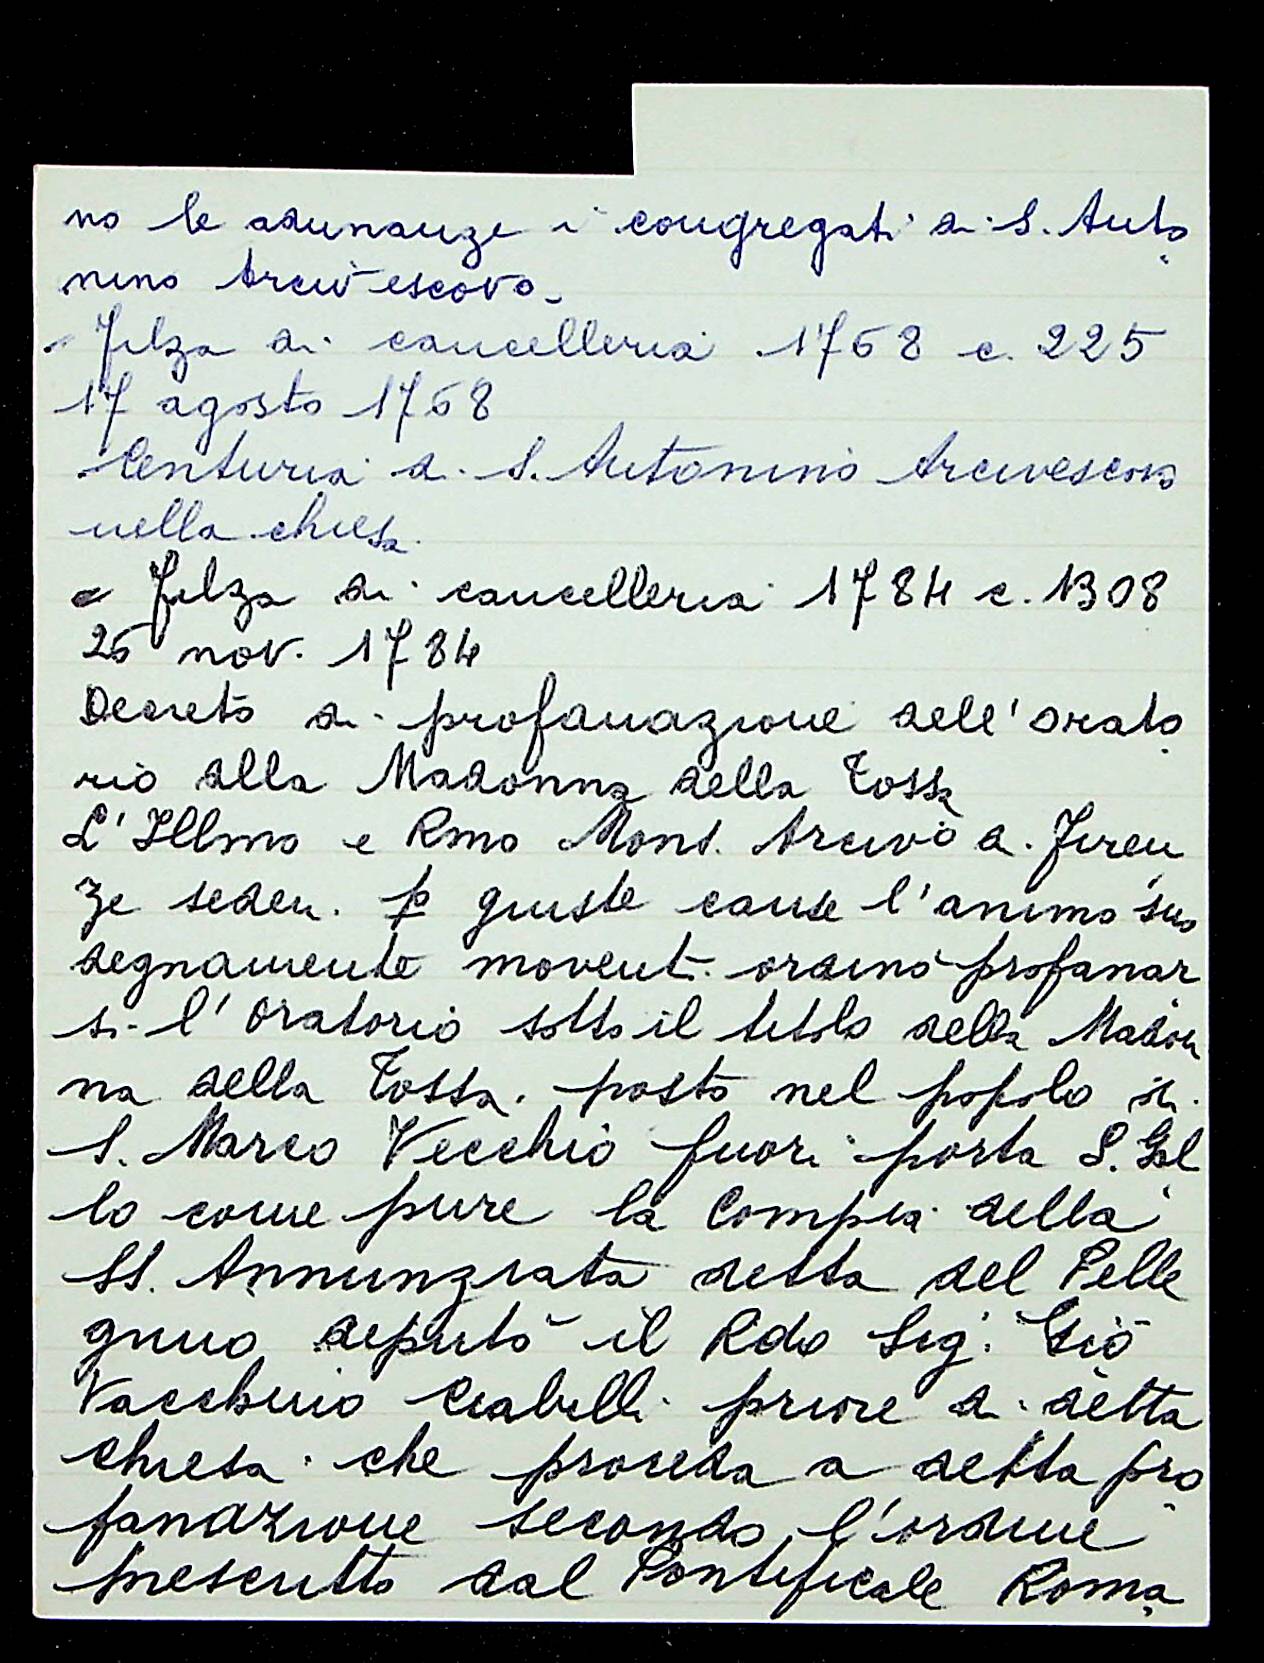 no le adunanze i congregati di S. Anto
nino Arcivescovo.
- Filza di cancelleria 1768 c. 225
17 agosto 1768
Centuria di S. Antonino Arcivescovo
nella chiesa.
- Filza di cancelleria 1784 c. 1308
26 nov. 1784
Decreto di profanazione dell'orato
rio alla Madonna della Tossa
L'Illmo e Rmo Mons. Arcivo di Firen
ze seden. p giuste cause l'animo suo
degnamente moventi ordinò profanar
si l'oratorio sotto il titolo della Madon
na della Tossa. posto nel popolo di
S. Marco Vecchio fuori porta S. Gal
lo come pure la Compia della
SS. Annunziata detta del Pelle
grino deputò il Rdo Sig. Gio
Vacchino Ciabilli priore di detta
chiesa che proceda a detta pro
fanazione secondo l'ordine
prescritto dal Pontificale Roma